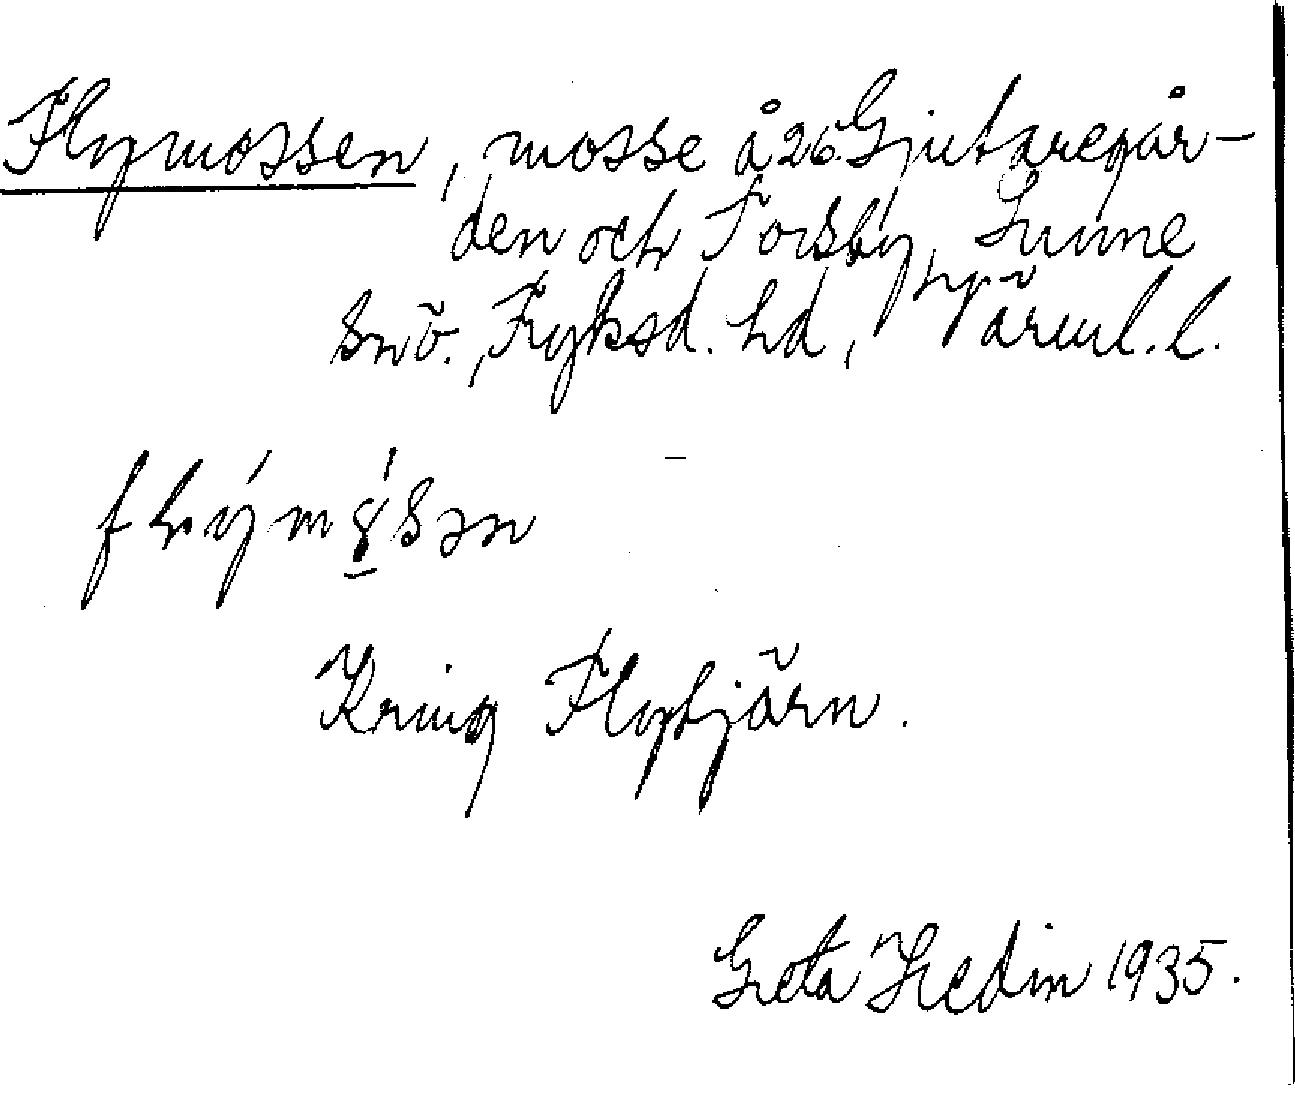 Flymossen, mosse å 26 Gjutaregår-
den och Torsby, Sunne
snö., Fryksd. hd, Värml. l.
Kring Flytjärn.
Greta Hedin 1935.